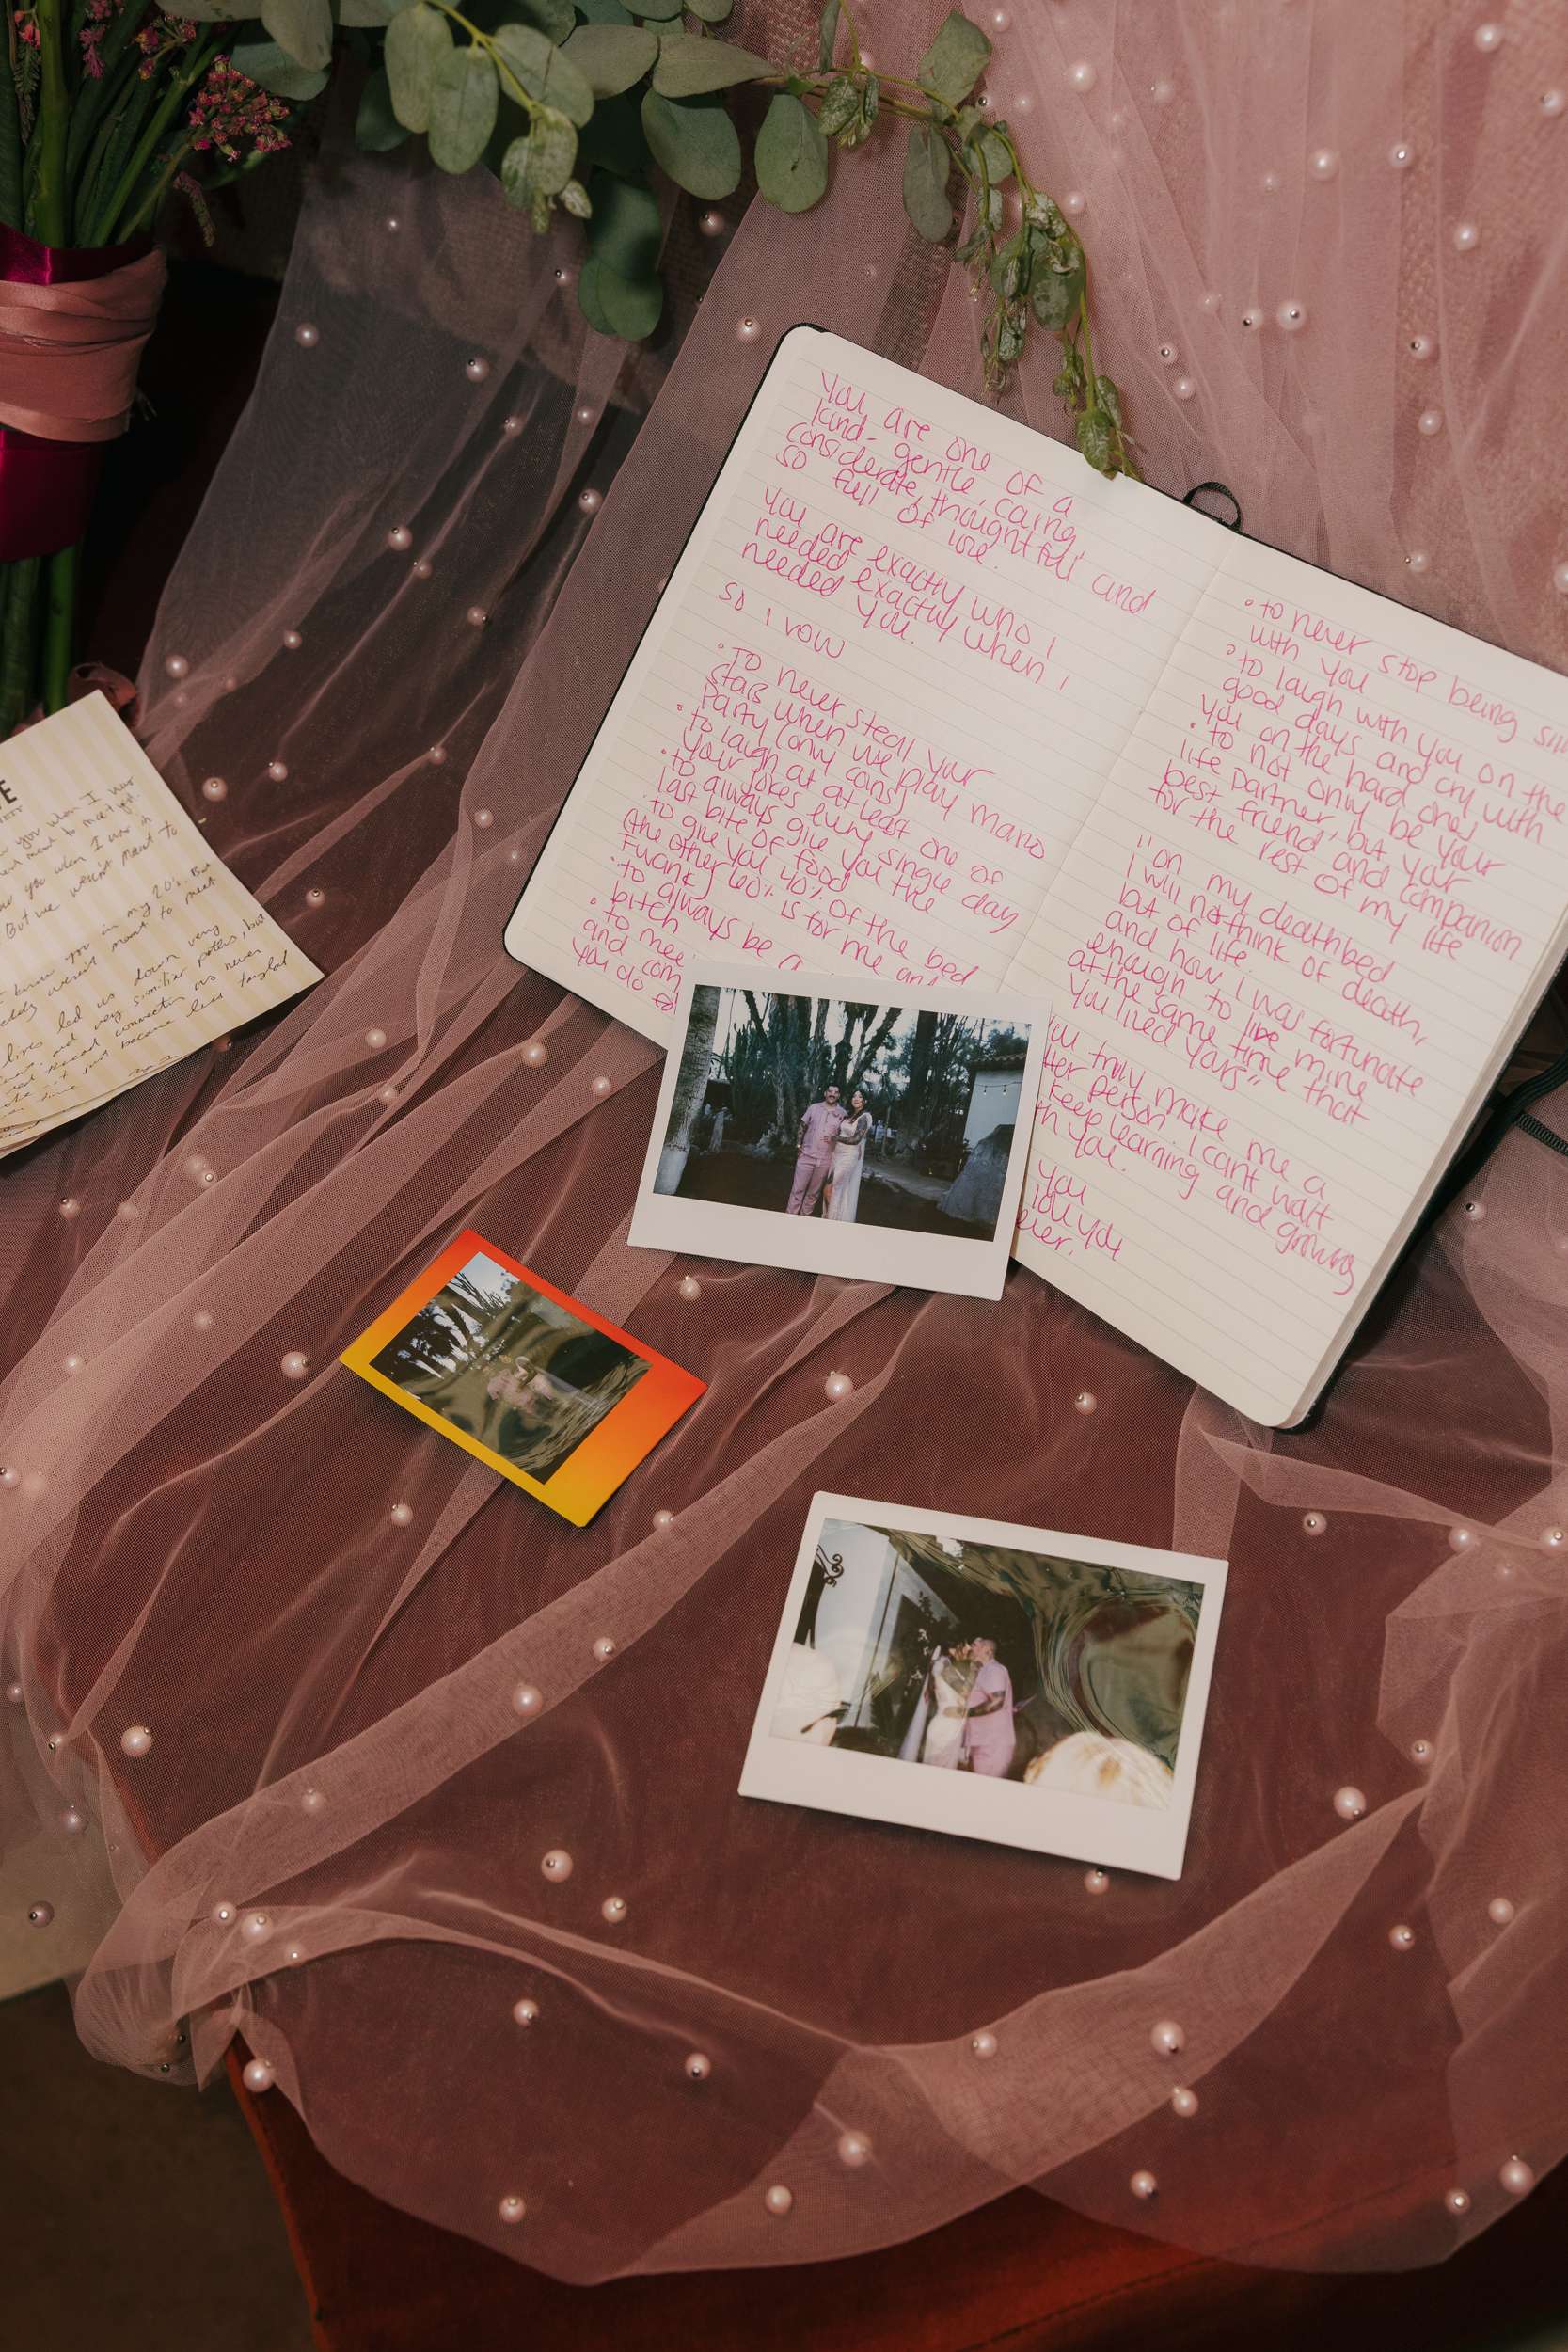 You are one of a
kind- gentle, caring,
considerate, thoughtful and
so full of love.
You are exactly who I
needed exactly when I
needed you.
so I vow
• To never steal your
stars when we play mario
party (only coins)
• to laugh at at least one of
your jokes every single day
• to always give you the
last bite of food
• to give you 40% of the bed
(the other 60% is for me and
Twank)
• to always be a
bitch
• to mee
and com
you do
• to never stop being
with you
• to laugh with you on the
good days and cry with
you on the hard ones
• to not only be your
life partner, but your
best friend and companion
for the rest of my life
"on my deathbed
I will not think of death,
but of life.
and how I was fortunate
enough to live mine
at the same time that
you lived yours"
truly make me a
person. I cant wait
keep learning and growing
you.
you
love you
E
you when I was
meant to
you when I was in
But we weren't meant to
you in my 20's. But
weren't meant to meet
lives led us down very
and very similar paths, but
connection as never
not become less